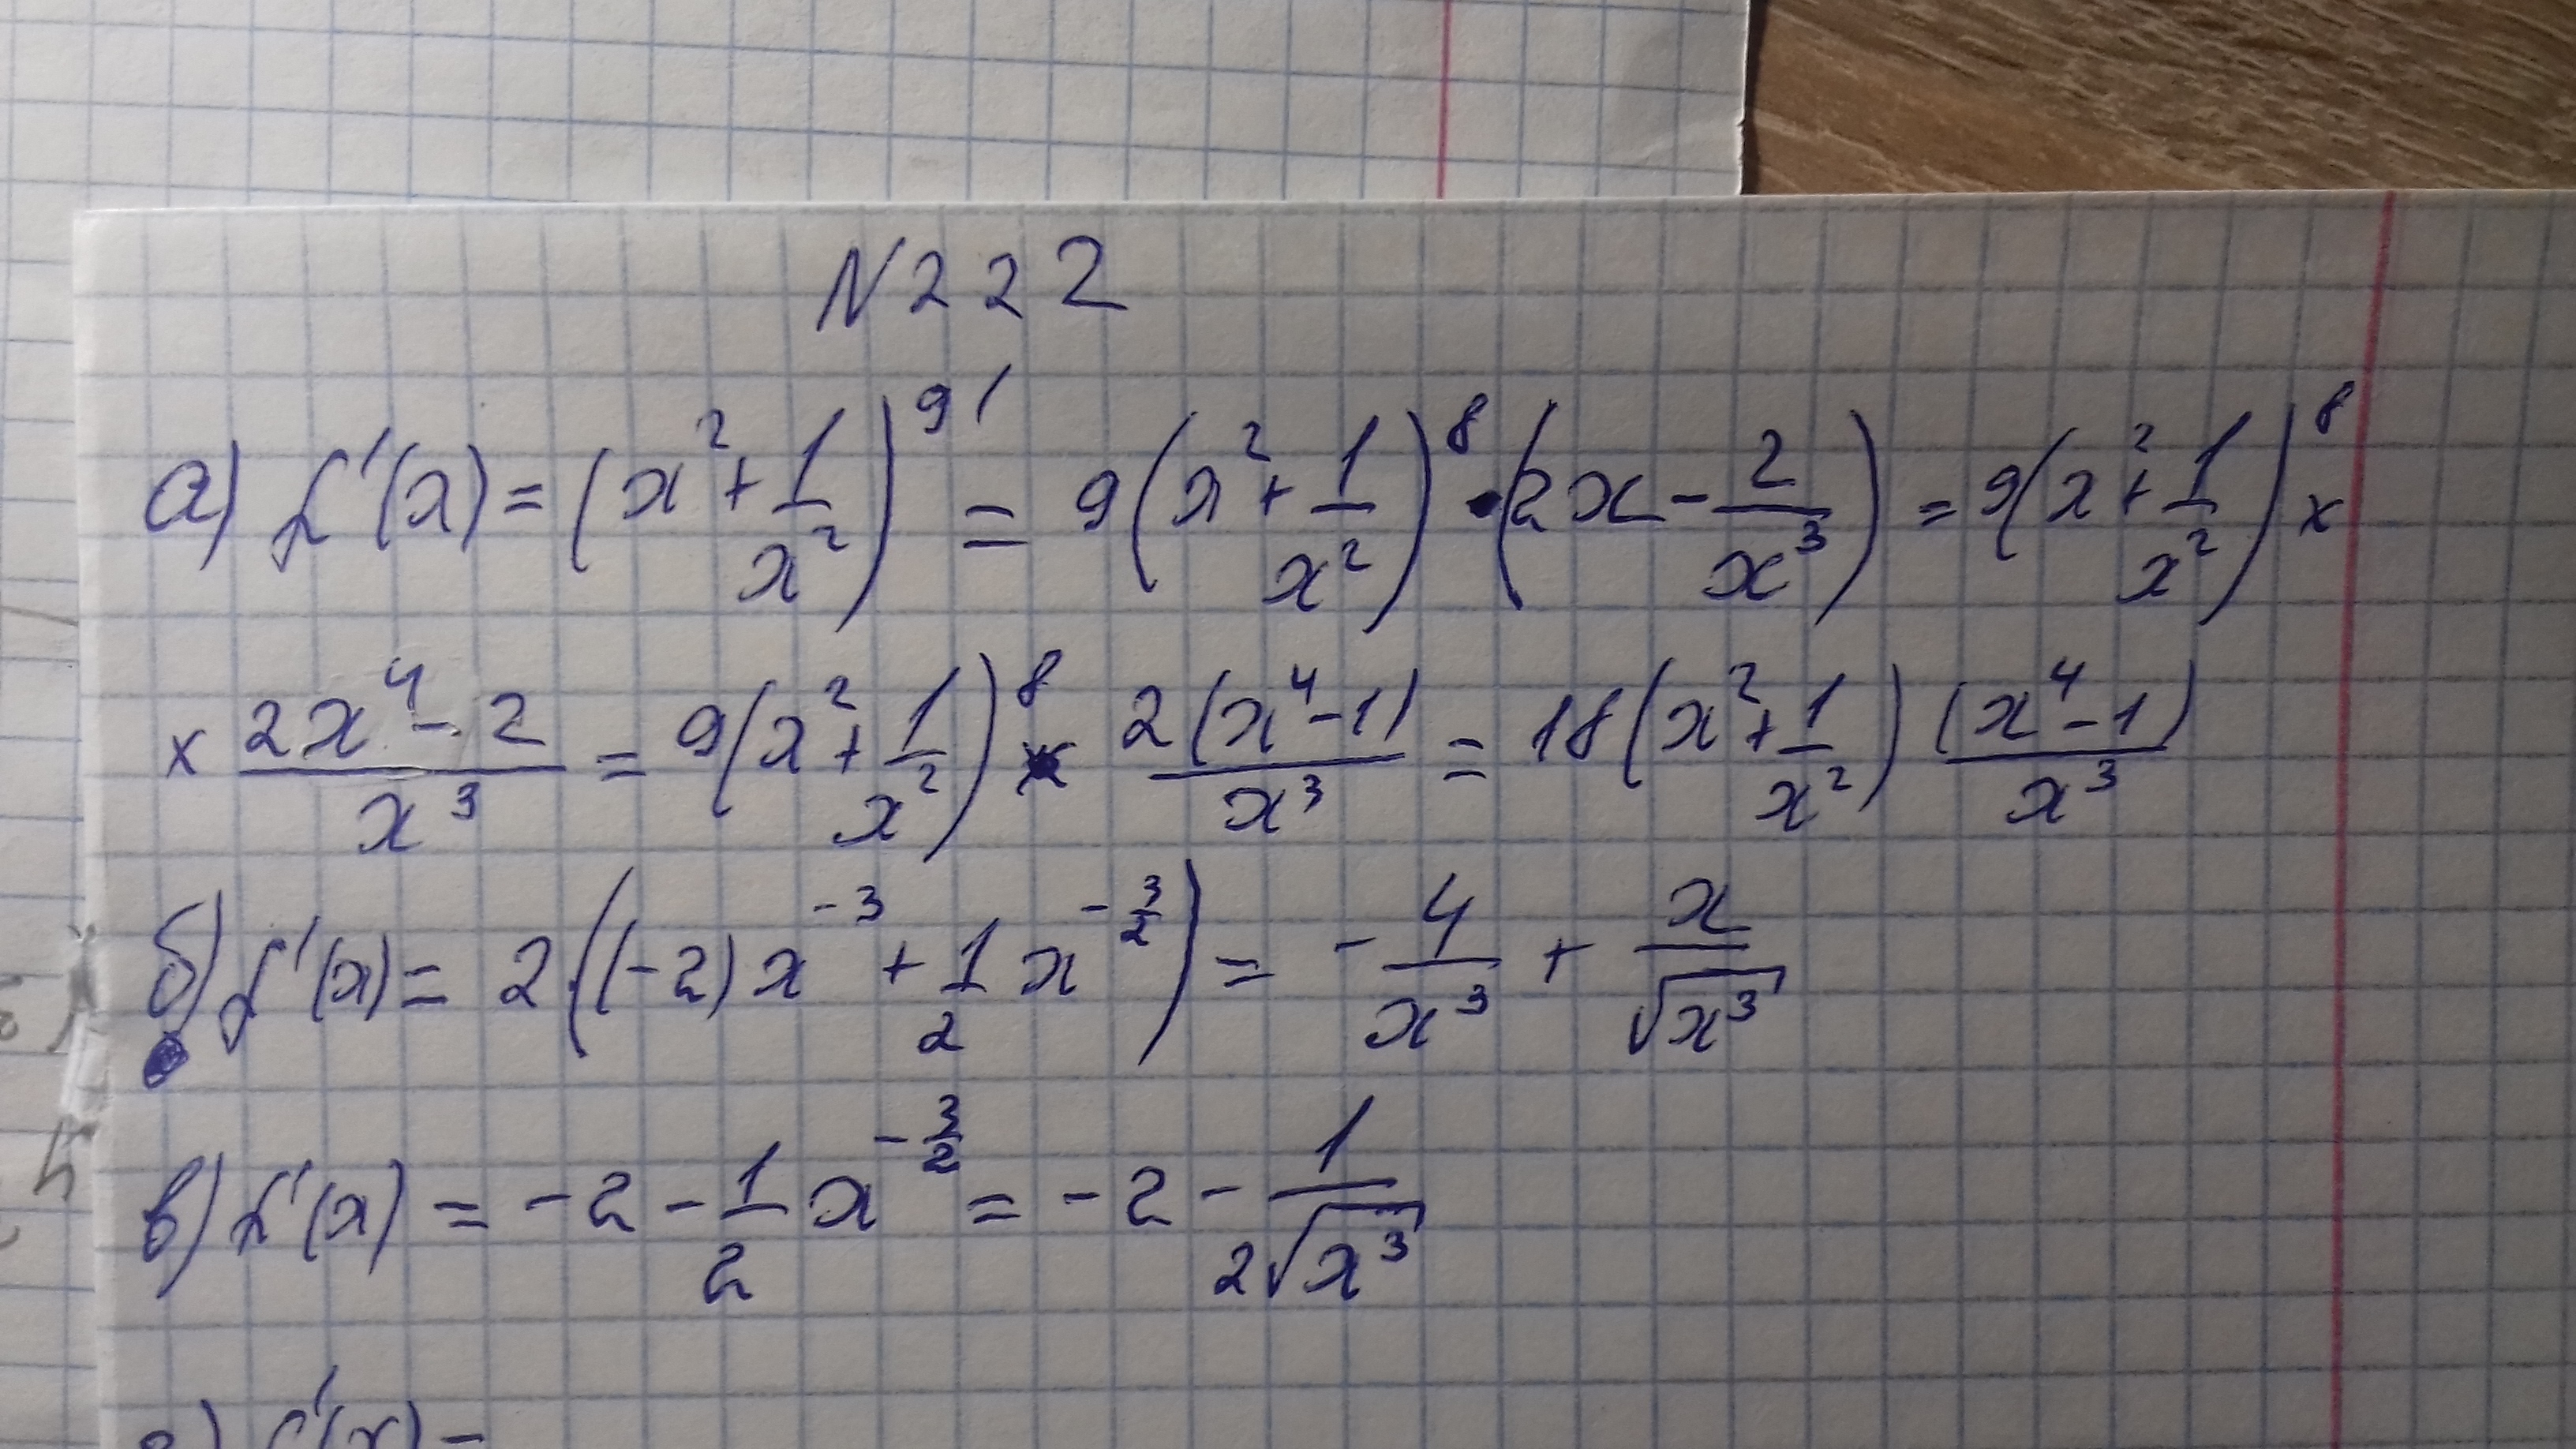 N222
а) f'(x) = (x² + 1/x²)⁹' = 9(x² + 1/x²)⁸ · (2x - 2/x³) = 9(x² + 1/x²)⁸ ×
× (2x⁴ - 2)/x³ = 9(x² + 1/x²)⁸ × 2(x⁴ - 1)/x³ = 18(x² + 1/x²) (x⁴ - 1)/x³
б) f'(x) = 2·((-2)x⁻³ + 1/2 x^(-3/2)) = - 4/x³ + x/√x³
в) f'(x) = -2 - 1/2 x^(-3/2) = -2 - 1/(2√x³)
г) f'(x) =